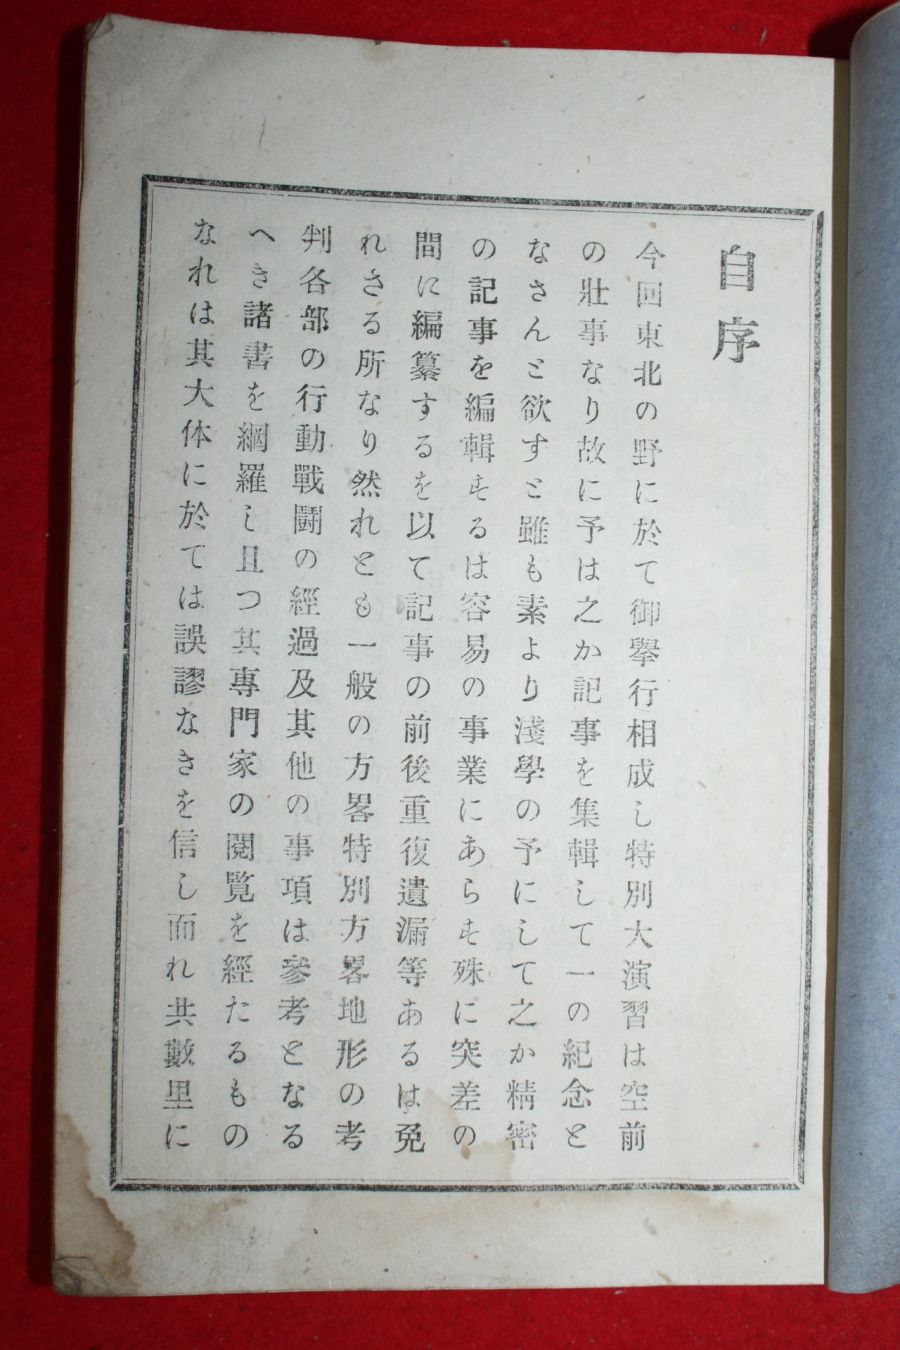 自序
今回東北の野に於て御擧行相成し特別大演習は空前
の壯事なり故に予は之か記事を集輯して一の紀念と
なさんと欲すと雖も素より淺學の予にして之か精密
の記事を編輯するは容易の事業にあらす殊に突差の
間に編纂するを以て記事の前後重復遺漏等あるは免
れさる所なり然れとも一般の方畧特別方畧地形の考
判各部の行動戰闘の經過及其他の事項は參考となる
へき諸書を網羅し且つ其專門家の閲覧を經たるもの
なれは其大体に於ては誤謬なきを信し而れ共數里に